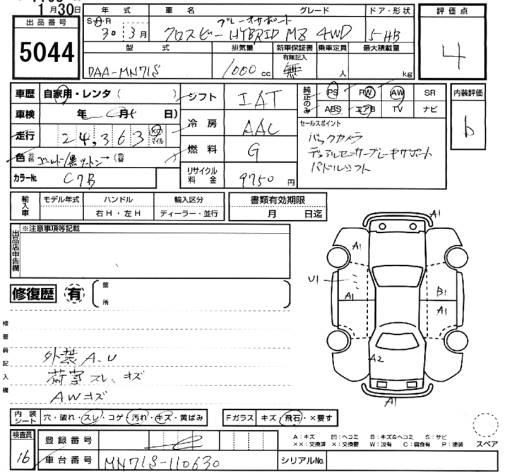 1月30日
出品番号
5044
年式 車名 グレード ドア・形状
S・H・R 30年 3月 クロスビー HYBRID MZ 4WD 5HB
型式 排気量 新車保証書 乗車定員 最大積載量
有無記入
DAA-MN71S 1000cc 無 人 kg
評価点
4
車歴 自家用・レンタ( )
シフト IAT
純正のみ PS PW AW SR
ABS エアB TV ナビ
内装評価
b
車検 年 月( 日)
冷房 AAC
セールスポイント
バックカメラ
デュアルセンサーブレーキサポート
パドルシフト
走行 24,363 km マイル
燃料 G
色
カラーNo. C7B
リサイクル料金 9750円
輸入車 モデル年式 ハンドル 輸入区分
右H・左H ディーラー・並行
書類有効期限
月 日迄
出品店申告欄
※注意事項等記載
修復歴 有 箇所
検査員記入欄
外装A.U
荷室スレ、キズ
AWキズ
A1
A1
A1
U1
A1
B1
A1
A1
A2
A1
内装シート 穴・破れ・スレ・コゲ・汚れ・キズ・黄ばみ
Fガラス キズ・飛石・×要す
スペア
検査員
16
登録番号
車台番号 MN71S-110630
シリアルNo.
A:キズ B:キズ&ヘコミ S:サビ
××:交換済 ×:要交換 W:波有 C:腐食有 P:塗装